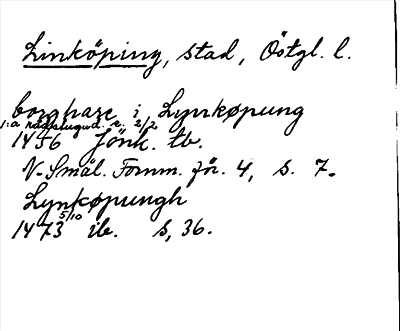 Linköping, stad, Östgl. l.
borghare i Lynkøpung
1:a rådstugud. e. 2/2
1456 Jönk. tb.
N. Smål. Fornm. för. 4, s. 7.
Lynkøpungh
1473 5/10 ib. s, 36.